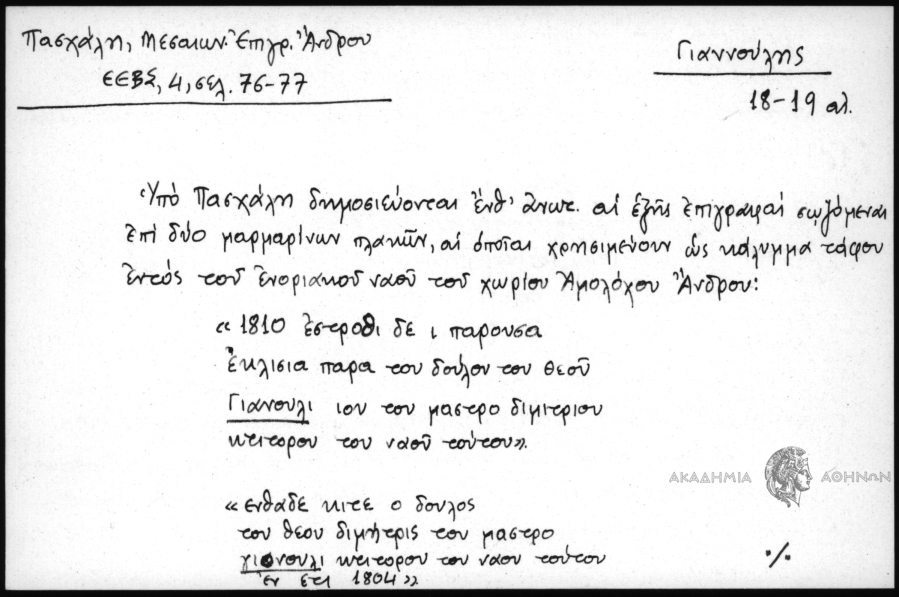 Πασχάλη, Μεσαιων. Ἐπιγρ. Ἄνδρου
ΕΕΒΣ, 4, σελ. 76-77
Γιαννούλης
18-19 αἰ.
Ὑπό Πασχάλη δημοσιεύονται ἔνθ' ἄνωτ. αἱ ἑξῆς ἐπιγραφαί σωζόμεναι
ἐπί δύο μαρμαρίνων πλακῶν, αἱ ὁποῖαι χρησιμεύουν ὡς κάλυμμα τάφου
ἐντός τοῦ ἐνοριακοῦ ναοῦ τοῦ χωρίου Ἀμολόχου Ἄνδρου:
« 1810 ἐστροθι δε ι παρουσα
ἐκλισια παρα του δούλου του θεοῦ
Γιανουλι ιου του μαστρο διμιτριου
κτιτορου του ναοῦ τούτου».
« ενθαδε κιτε ο δουλος
του θεου διμήτρις του μαστρο
γιονουλι κτιτορου του ναου τούτου
εν ετι 1804 »
·/·
ΑΚΑΔΗΜΙΑ ΑΘΗΝΩΝ